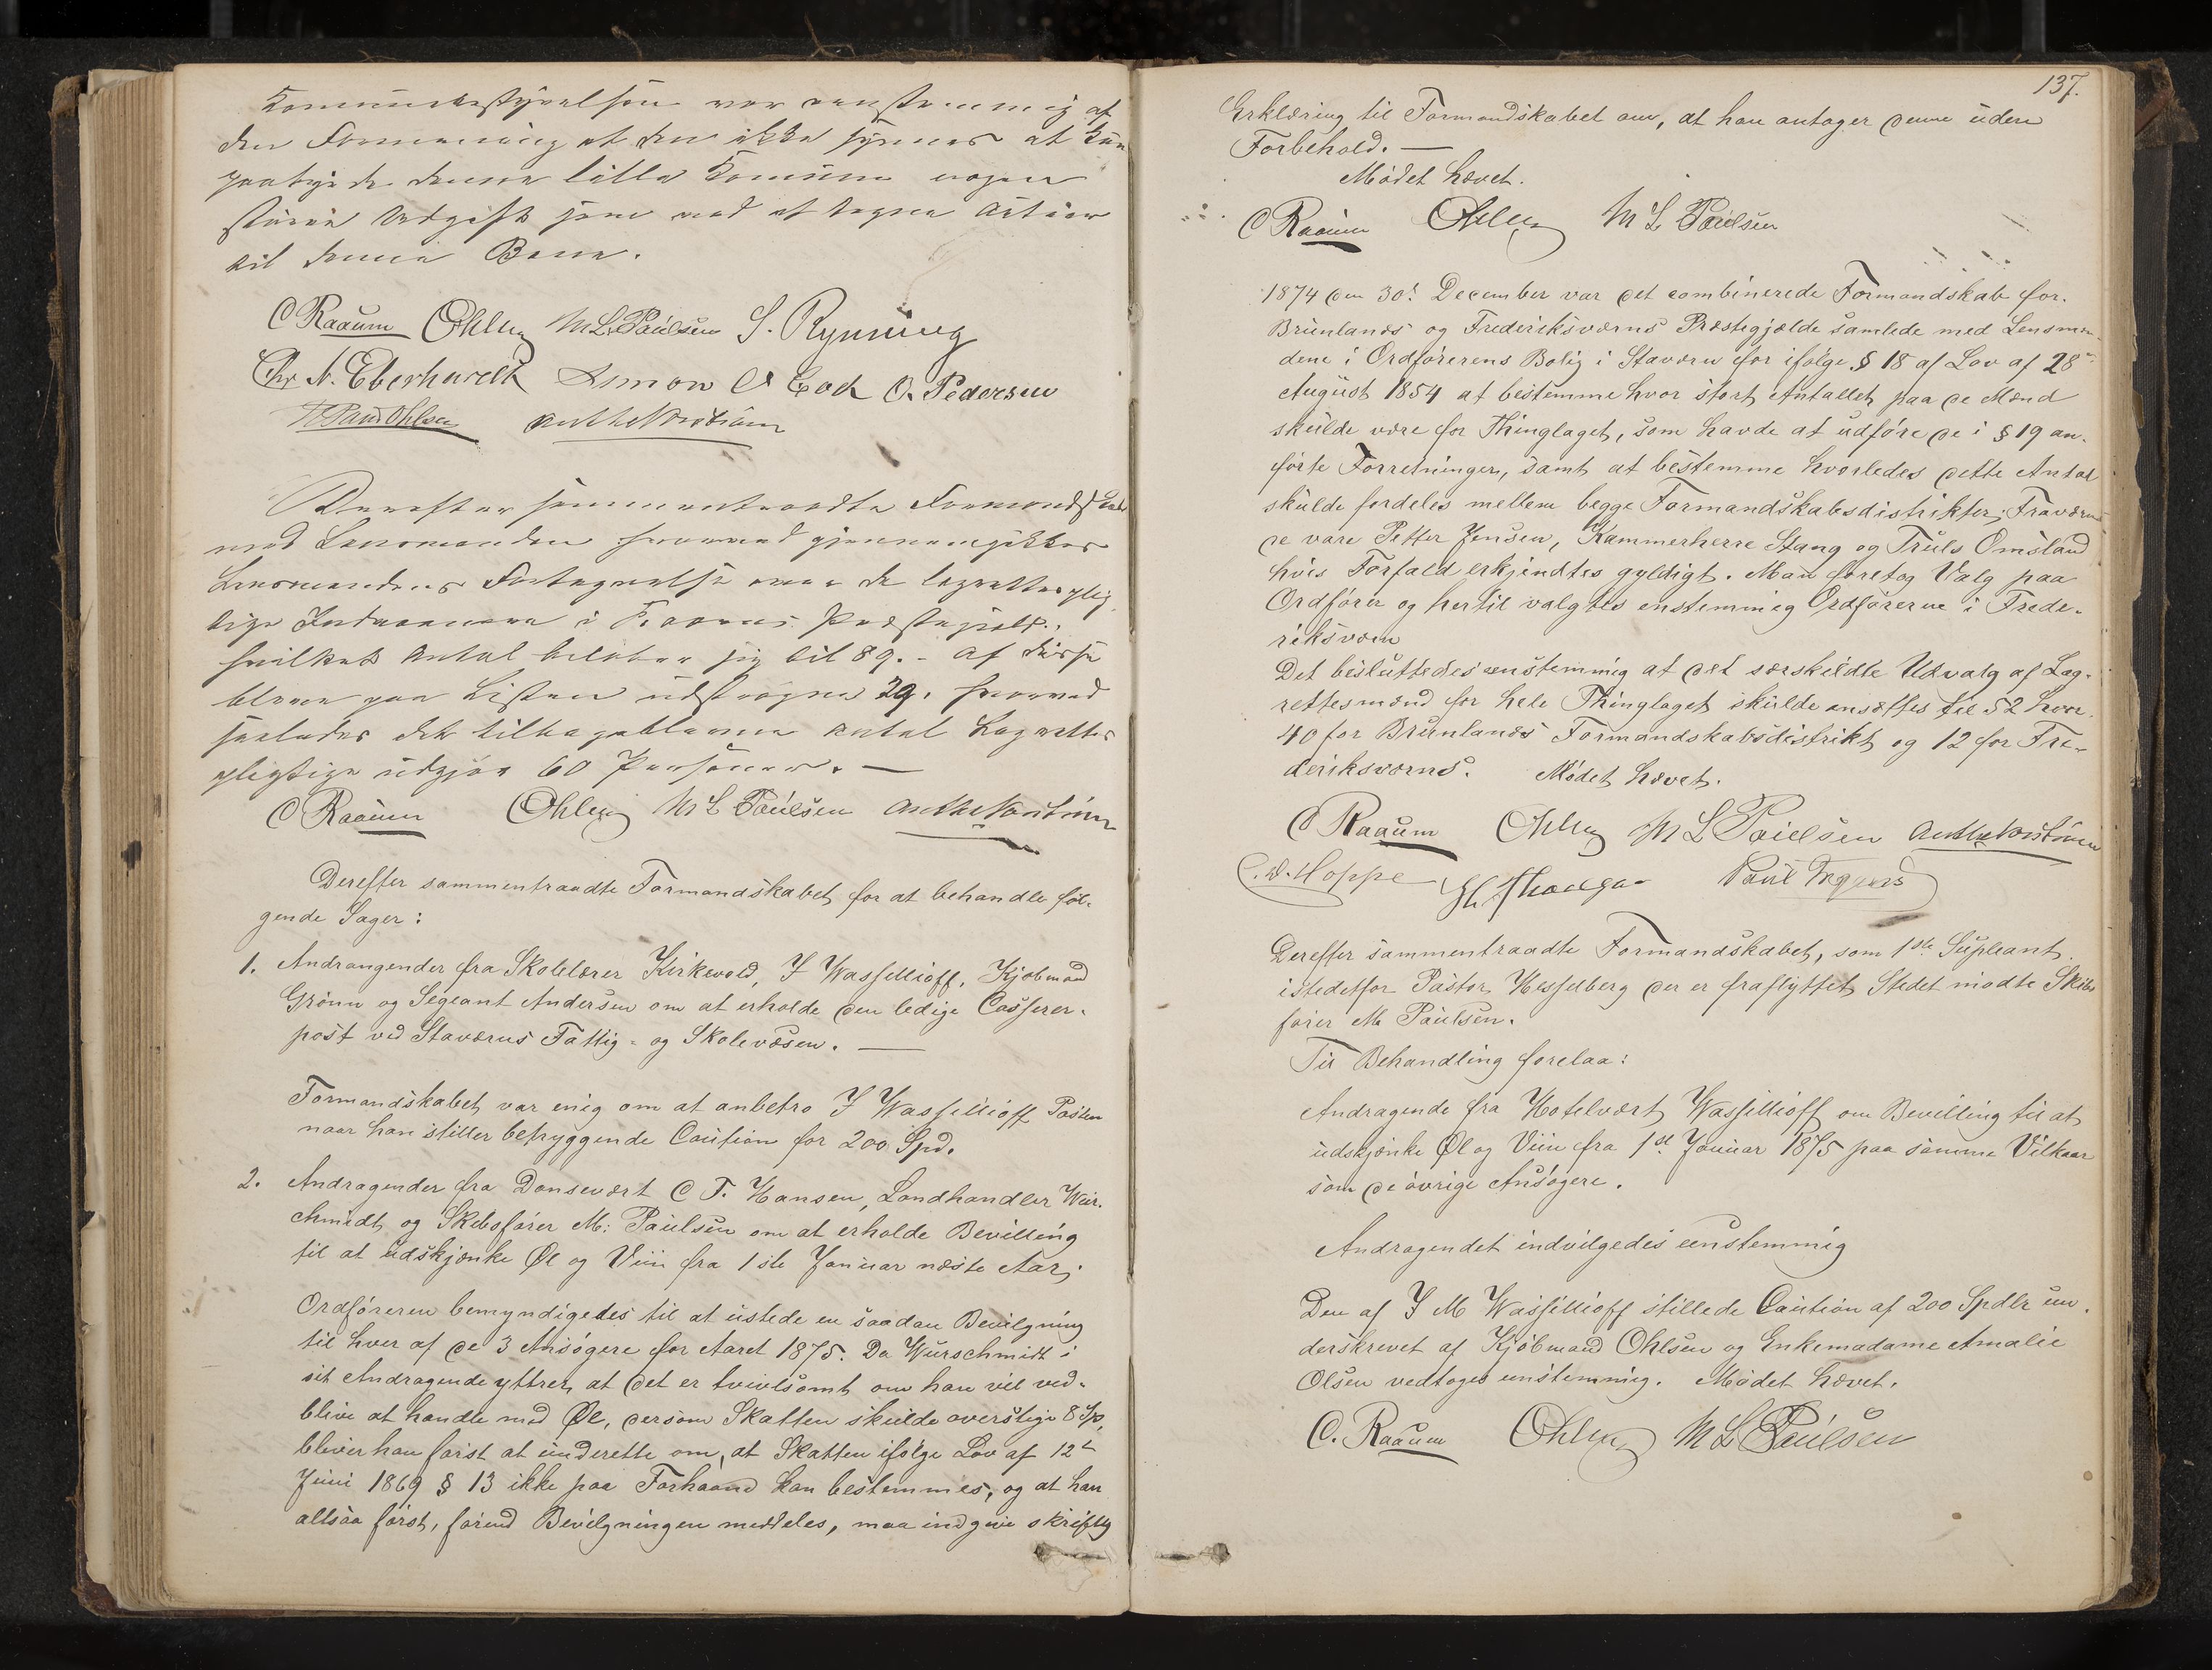 Kommunebestyrelsen var eenstemmig af
den Formening at den ikke synes at kun
paatyde denne lille Komune nogen
större Udgift som ved at tegne Actier
til denne Bane.
C Raaum Ohlsen M L Paulsen S. Ryning
Chr A. Eberhardt Simon O. Pedersen
Derefter sammentraadte Formandskabet
med Lensmanden hvorved gjennemgikkes
Lensmandens Fortegnelse over de lagrettesplig
tige Indvaanere i Præstegjeld,
hvilket Antal beløber sig til 89. - Af disse
bleve paa Listen udstrøgne 29. hvorved
saaledes det tilbageblevne Antal Lagrettes
pligtige udgjør 60 Personer. —
C Raaum Ohlsen M L Paulsen
Derefter sammentraadte Formandskabet for at behandle föl-
gende Sager:
1. Andrangender fra Skolelærer Kirkevold, J Wassillioff, Kjøbmand
Grönn og Segeant Andersen om at erholde den ledige Casserer-
post ved Staværns Fattig- og Skolevæsen. —
Formandskabet var enig om at anbetro J Wassillioff Posten
naar han stiller betryggende Caution for 200 Spd.
2. Andragender fra Dansevært C T. Hansen, Landhandler Wür-
chmidt og Skibsförer M: Paulsen om at erholde Bevilling
til at udskjænke Øl og Viin fra 1ste Januar næste Aar;
Ordföreren bemyndigedes til at ustede en saadan Bevilgning
til hver af de 3 Ansögere for Aaret 1875. Da Würschmidt i
sit Andragende yttrer, at det er tvivlsomt om han vil ved-
blive at handle med Øl, dersom Skatten skulde overstige 8 Sp,
bliver han först at underette om, at Skatten ifölge Lov af 12t
Juni 1869 § 13 ikke paa Forhaand kan bestemmes, og at han
altsaa först, förend Bevilgningen meddeles, maa indgive skriftlig
137.
Erklæring til Formandskabet om, at han antager denne uden
Forbehold. —
Mödet hævet.
C Raaum Ohlsen M L Paulsen
1874 den 30t December var det combinerede Formandskab for
Brunlands og Frederiksværns Præstegjælde samlede med Lensman-
dene i Ordförerens Bolig i Staværn for ifölge § 18 af Lov af 28
August 1854 at bestemme hvor stort Antallet paa de Mænd
skulde være for Thinglaget, som havde at udföre de i § 19 an-
förte Forretninger, samt at bestemme hvorledes dette Antal
skulde fordeles mellem begge Formandskabsdistrikter; Fraværen
de vare Petter Jensen, Kammerherre Stang og Truls Omsland
hvis Forfald erkjendtes gyldigt. Man foretog Valg paa
Ordförer og hertil valgtes enstemmig Ordförerne i Frede-
riksværn
Det besluttedes eenstemmig at det særskildte Udvalg af Lag-
rettesmænd for hele Thinglaget skulde ansættes til 52 hvor
40 for Brunlands Formandskabsdistrikt og 12 for Fre-
deriksværns. Mödet hævet.
C Raaum Ohlsen M L Paulsen
C. W. Hoppe Poul
Derefter sammentraadte Formandskabet, som 1ste Supleant
istedetfor Pastor Hesselberg der er fraflyttet Stedet mödte Skibs
förer M Paulsen.
Til Behandling forelaa:
Andragende fra Hotelvært Wassillioff om Bevilling til at
udskjænke Øl og Viin fra 1st Januar 1875 paa samme Vilkaar
som de övrige Ansögere.
Andragendet indvilgedes eenstemmig
Den af J M Wassillioff stillede Caution af 200 Spdlr un-
derskrevet af Kjöbmand Ohlsen og Enkemadame Amalie
Olsen vedtoges eenstemmig. Mödet hævet.
C. Raaum Ohlsen M L Paulsen